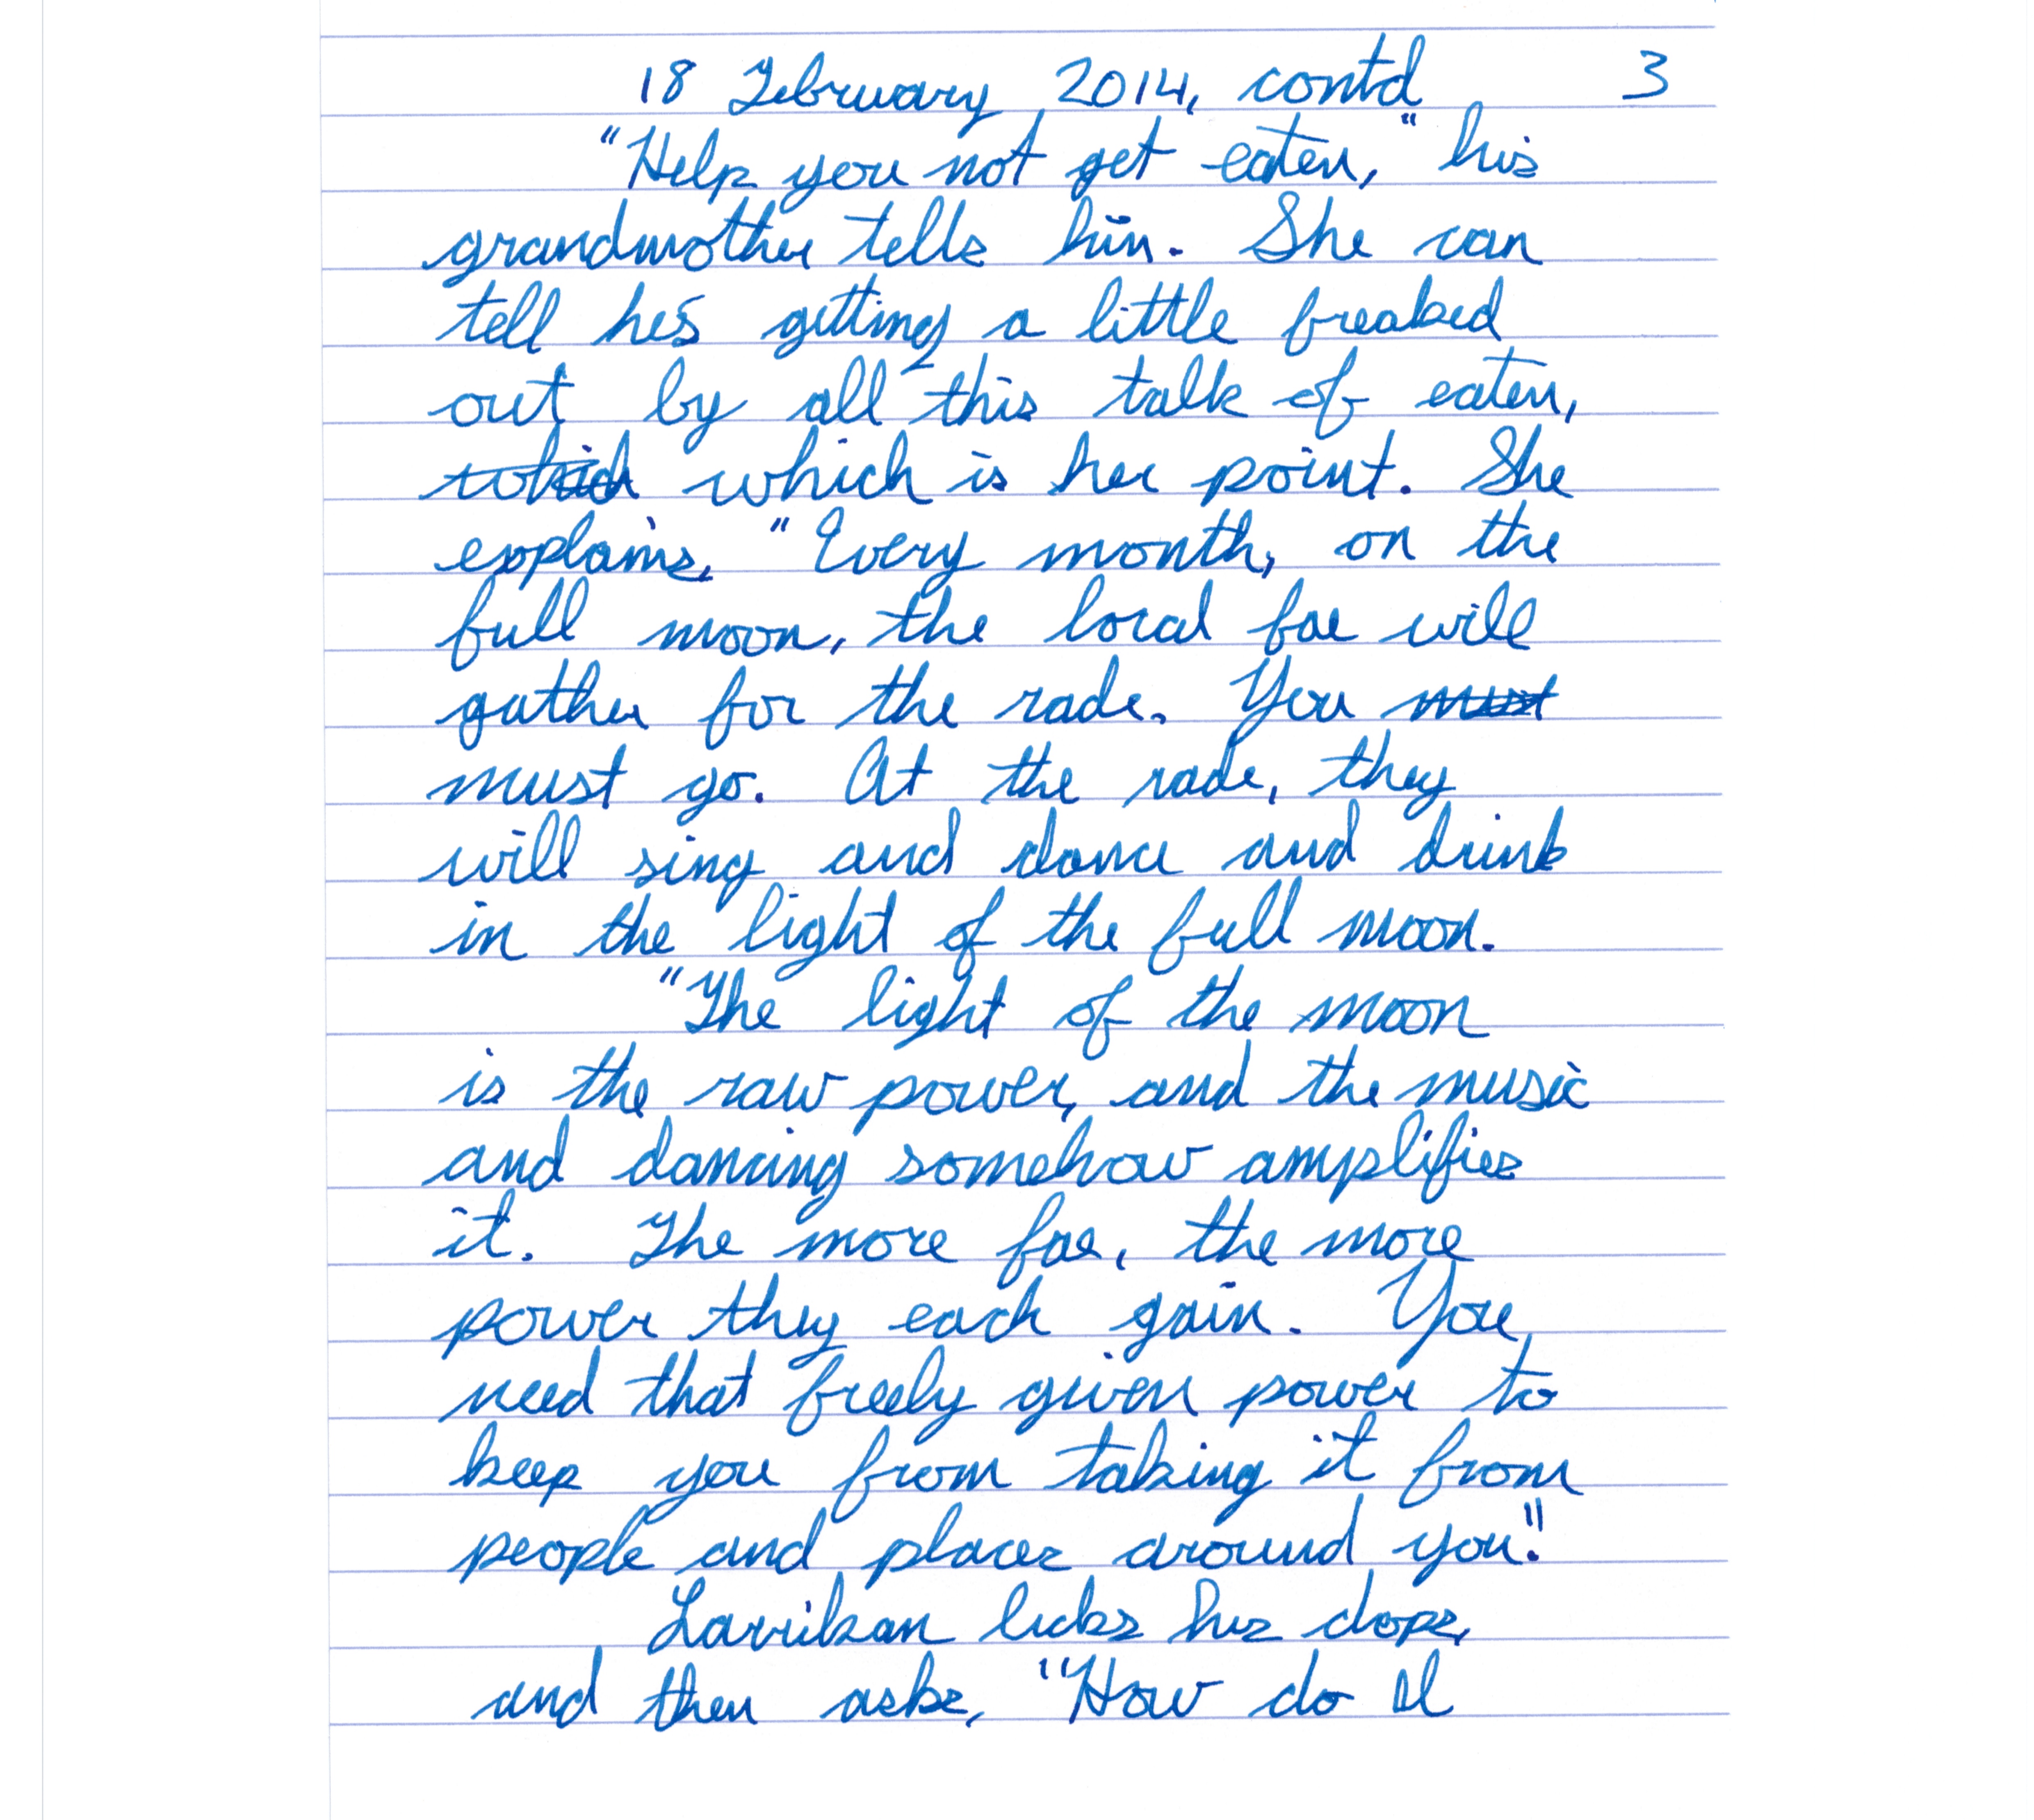 18 February 2014, contd 3
"Help you not get eaten," his
grandmother tells him. She can
tell he's getting a little freaked
out by all this talk of eaten,
which which is her point. She
explains, "Every month, on the
full moon, the local fae will
gather for the rade. You must
must go. At the rade, they
will sing and dance and drink
in the light of the full moon.
"The light of the moon
is the raw power, and the music
and dancing somehow amplifies
it. The more fae, the more
power they each gain. You
need that freely given power to
keep you from taking it from
people and places around you."
Larrikan licks his chops,
and then asks, "How do I